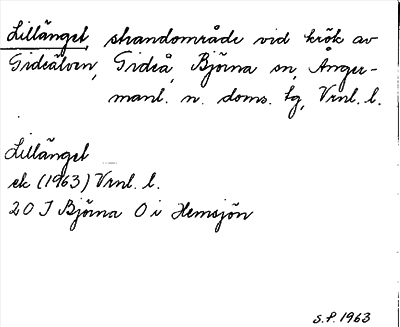 Lillänget, strandområde vid krök av
Gideälven, Gideå, Björna sn, Ånger-
manl. n. doms. tg, Vrnl. l.
Lillänget
ek (1963) Vrnl. l.
20 I Björna O i Hemsjön
S.P. 1963